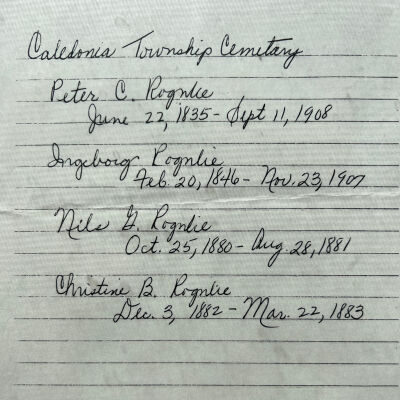 Caledonia Township Cemetary
Peter C. Rognlie
June 22, 1835 - Sept 11, 1908
Ingeborg Rognlie
Feb. 20, 1846 - Nov. 23, 1907
Nils G. Rognlie
Oct. 25, 1880 - Aug. 28, 1881
Christine B. Rognlie
Dec. 3, 1882 - Mar. 22, 1883